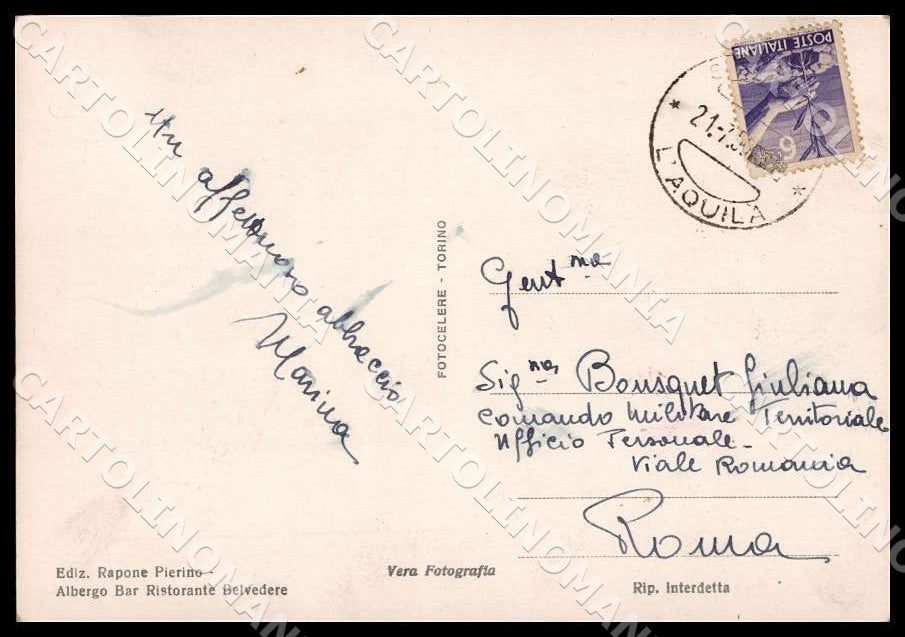 POSTE ITALIANE
6
21.7.
L'AQUILA
Un affettuoso abbraccio
Marina
FOTOCELERE - TORINO
Gent ma
Sig na Bousquet Giuliana
Comando Militare Territoriale
Ufficio Personale -
Viale Romania
Roma
Ediz. Rapone Pierino -
Albergo Bar Ristorante Belvedere
Vera Fotografia
Rip. interdetta
CARTOLINOMANIA